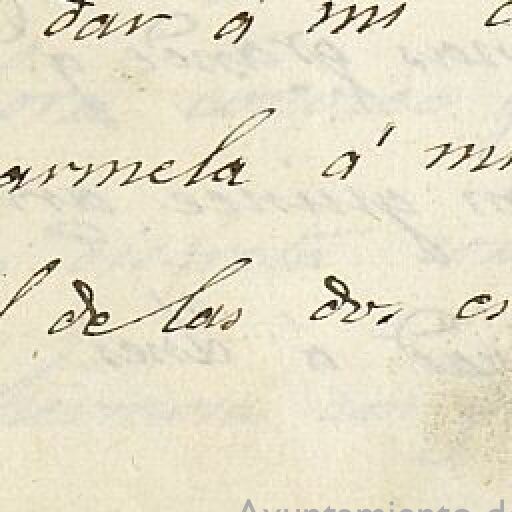 dar á mi
armela á mi
de las dos es
Ayuntamiento d